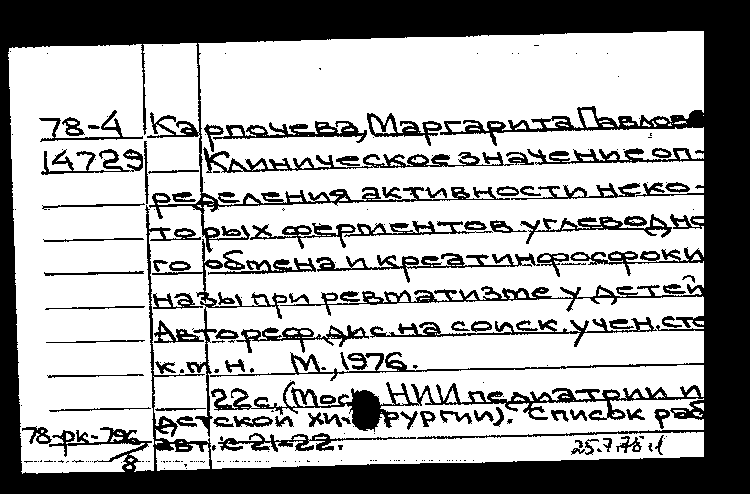 78-4 Карпочева, Маргарита Павлов
14729 Клиническое значение оп-
ределения активности неко-
торых ферментов углеводно
го обмена и креатинфосфоки
назы при ревматизме у детей
Автореф. дис. на соиск. учен. сте
к.м.н. М., 1976.
22с. (Мос НИИ педиатрии и
детской хи- рургии). Список раб
78-рк-796 авт.: с 21-22.
8 25.7.78